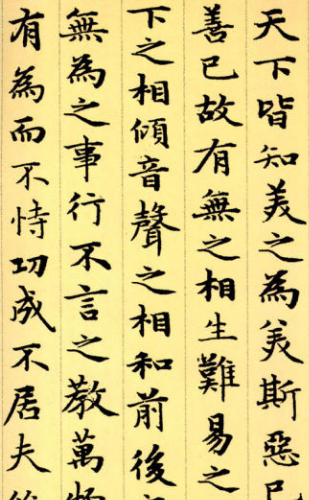 天下皆知美之為美斯惡已
善已故有無之相生難易之
下之相傾音聲之相和前後
無為之事行不言之教萬物
有為而不恃功成不居夫